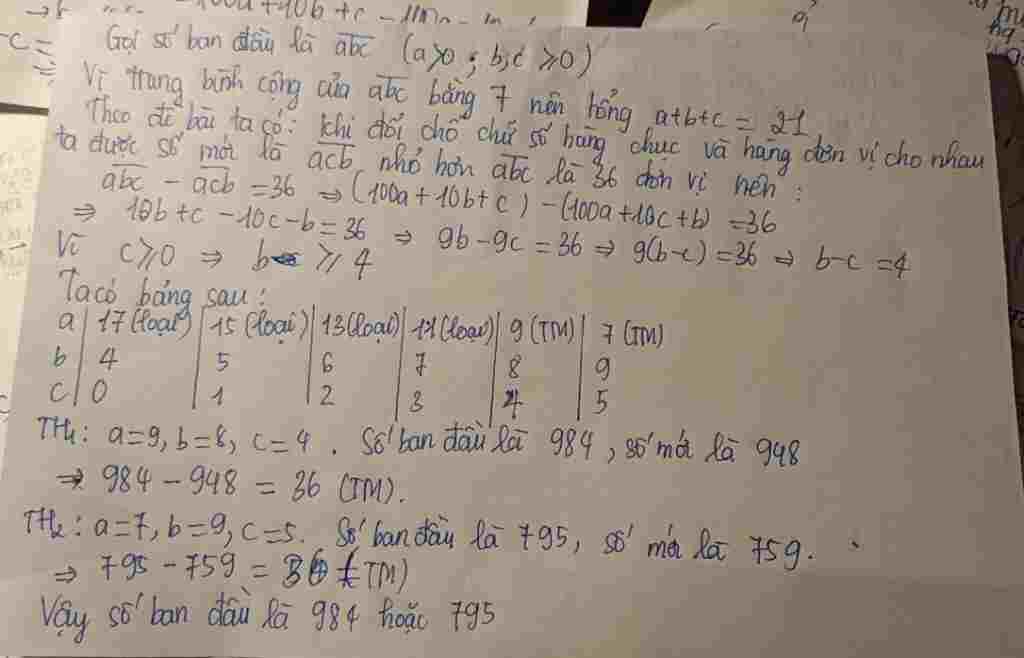 100a + 10b + c
-c =
Gọi số ban đầu là abc (a>0 ; b,c ≥0)
Vì trung bình cộng của abc bằng 7 nên tổng a+b+c = 21
Theo đề bài ta có: khi đổi chỗ chữ số hàng chục và hàng đơn vị cho nhau
ta được số mới là acb nhỏ hơn abc là 36 đơn vị nên :
abc - acb = 36 ⇒ (100a + 10b + c) - (100a + 10c + b) = 36
⇒ 10b + c - 10c - b = 36 ⇒ 9b - 9c = 36 ⇒ 9(b-c) = 36 ⇒ b-c = 4
Vì c ≥ 0 ⇒ b ≥ 4
Ta có bảng sau :
a | 17 (loại) | 15 (loại) | 13 (loại) | 11 (loại) | 9 (TM) | 7 (TM)
b | 4 | 5 | 6 | 7 | 8 | 9
c | 0 | 1 | 2 | 3 | 4 | 5
TH₁: a=9, b=8, c=4 . Số ban đầu là 984 , số mới là 948
⇒ 984 - 948 = 36 (TM).
TH₂: a=7, b=9, c=5. Số ban đầu là 795, số mới là 759.
⇒ 795 - 759 = 36 (TM)
Vậy số ban đầu là 984 hoặc 795